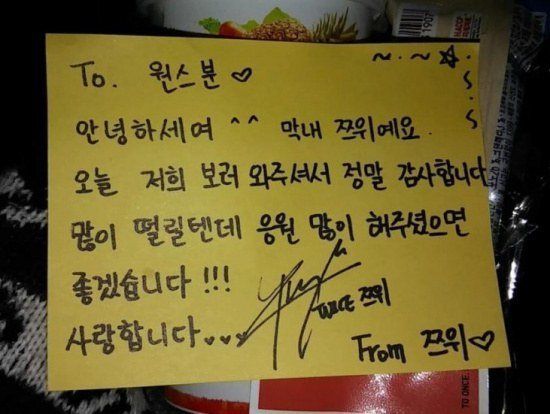 To. 원스분♡
안녕하세여 ^^ 막내 쯔위예요.
오늘 저희 보러 와주셔서 정말 감사합니다
많이 떨릴텐데 응원 많이 해주셨으면
좋겠습니다 !!!
사랑합니다...
TWICE 쯔위
From 쯔위♡
TO ONCE